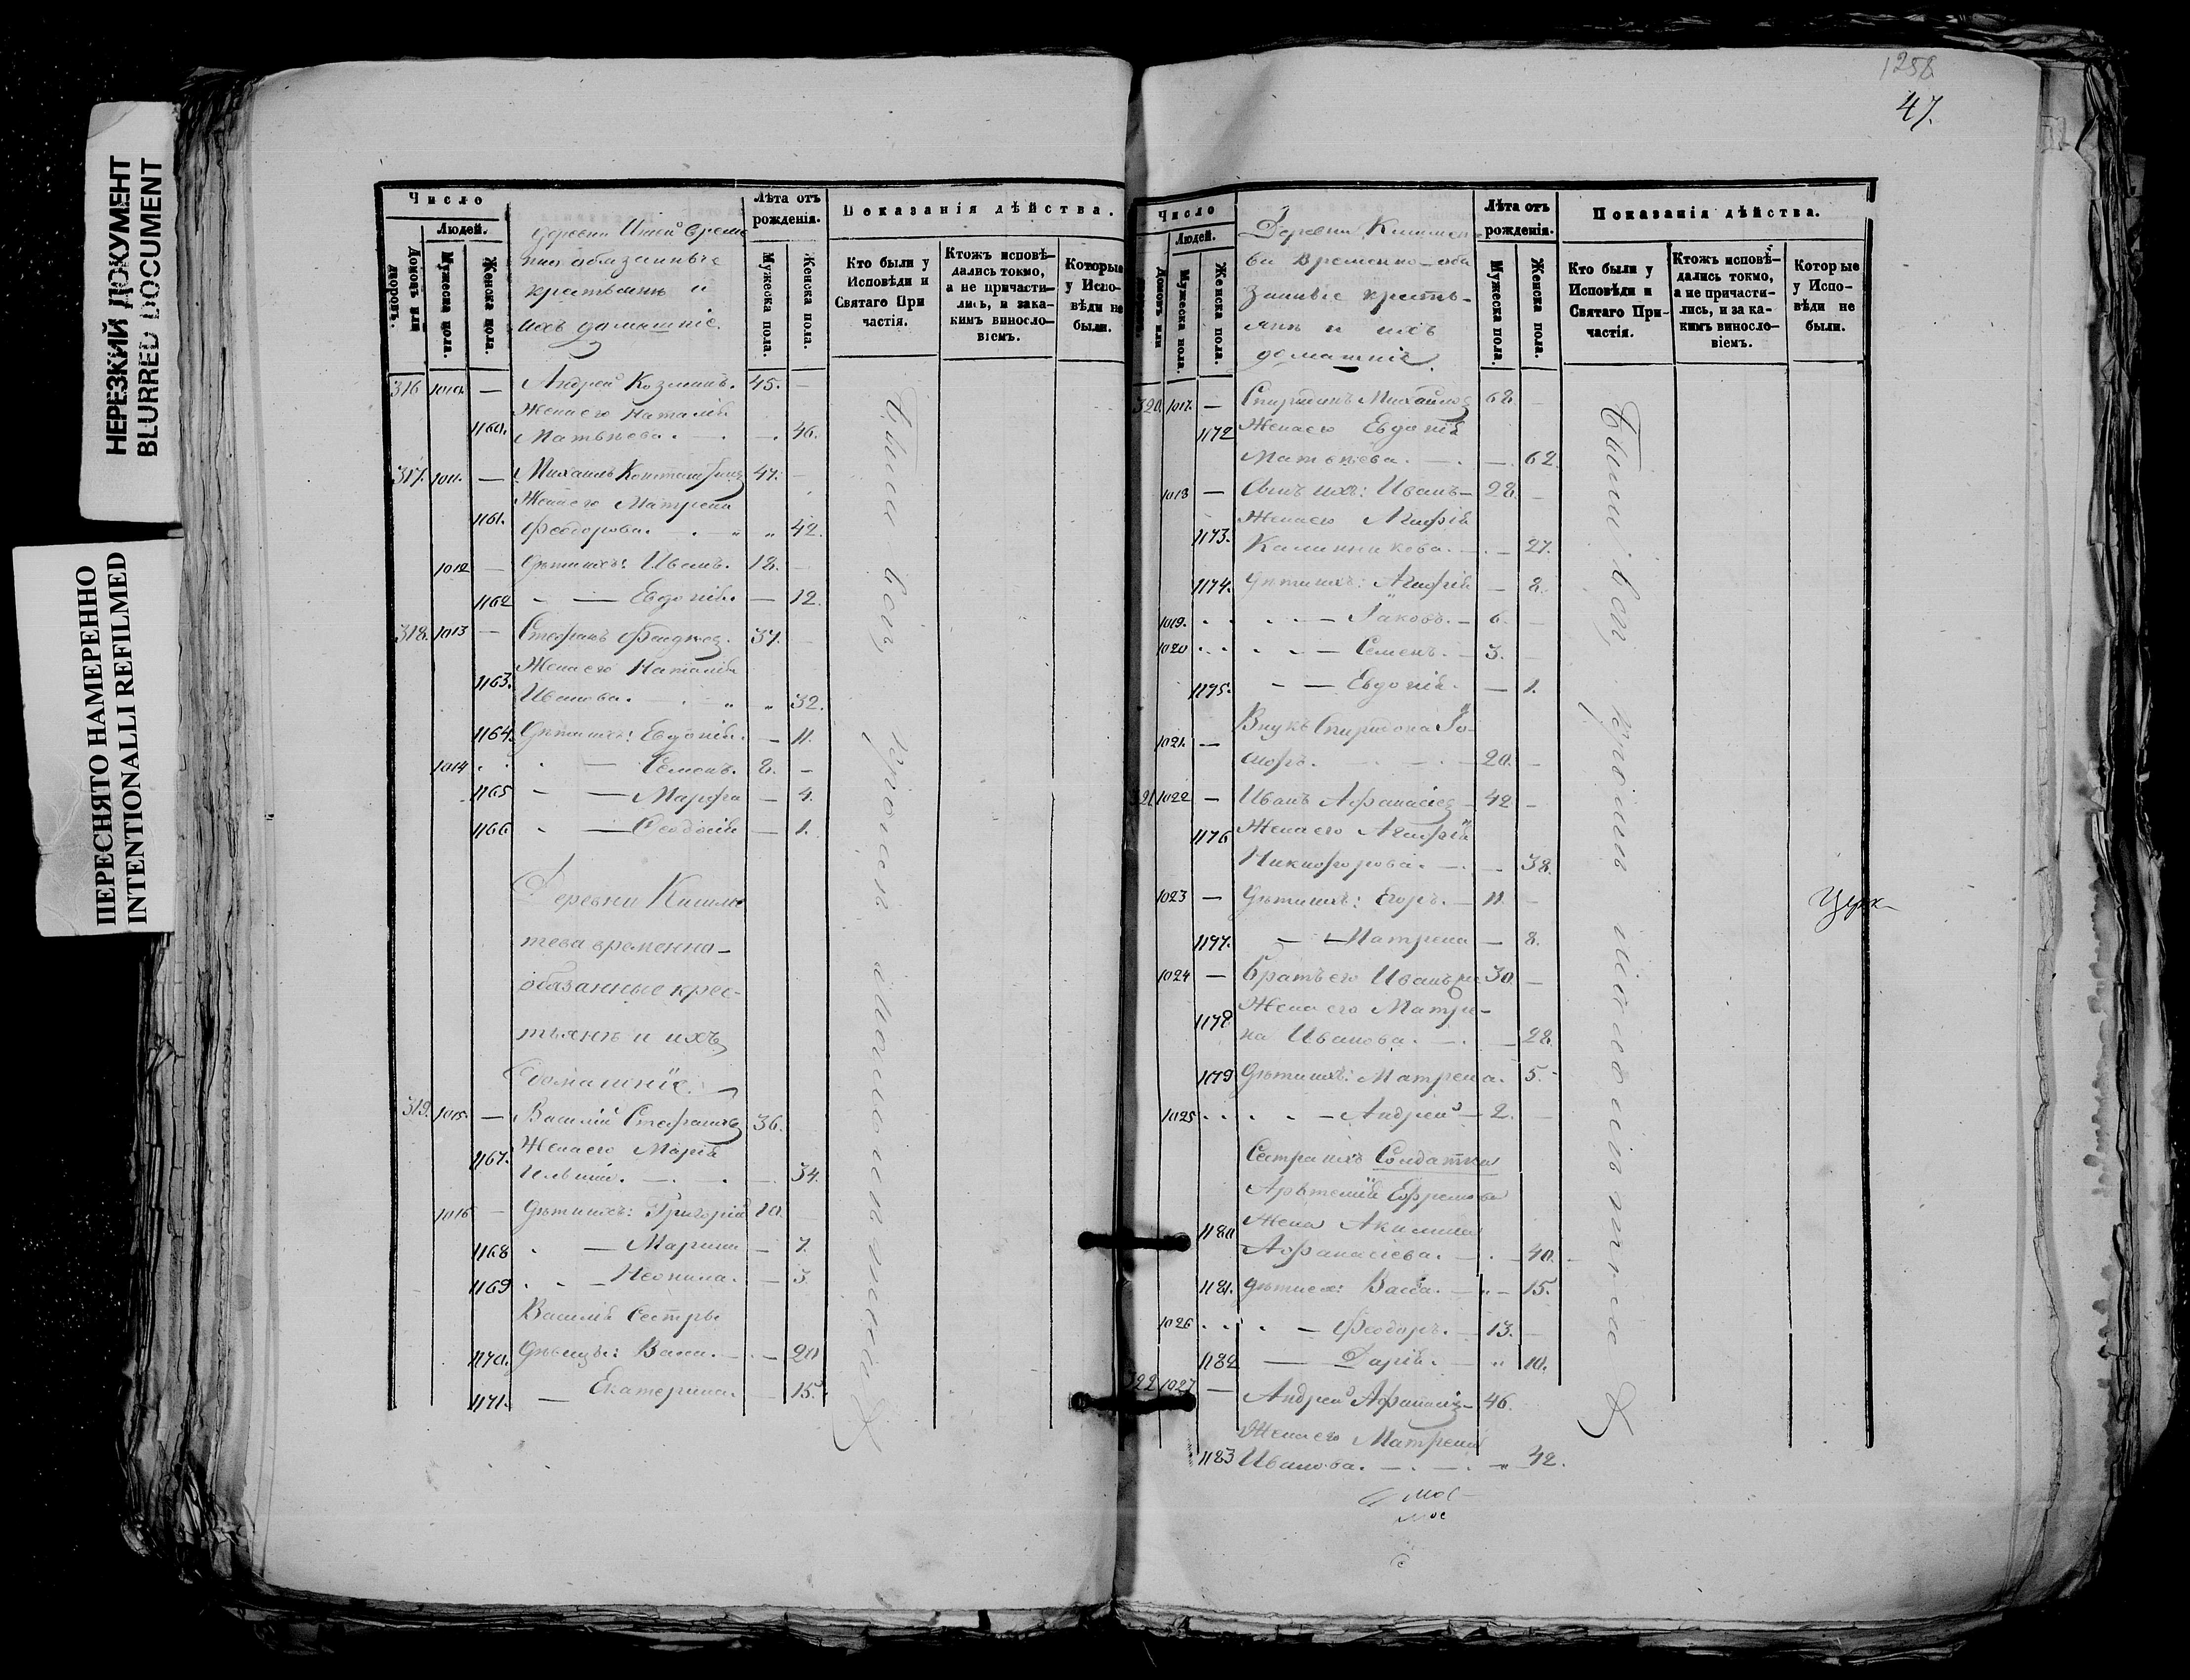 НЕРЕЗКИЙ ДОКУМЕНТ
BLURRED DOCUMENT
ПЕРЕСНЯТО НАМЕРЕННО
INTENTIONALLI REFILMED
Число
Людей.
Домовъ или дворовъ.
Мужеска пола.
Женска пола.
деревни
обязанные
крестьяне и
ихъ домашніе.
Лѣта отъ рожденія.
Мужеска пола.
Женска пола.
Показанія дѣйства.
Кто были у Исповѣди и Святаго При частія.
Ктожъ исповѣ- дались токмо, а не причасти- лись, и за ка- кимъ винословіемъ.
Которые у Испо- вѣди не были.
316 1010. — Андрей Козминъ. 45. —
Жена его Наталія
1160. Матвѣева. 46.
317. 1011. — Михаилъ 47. —
Жена его Матрена
1161. Феодорова. 42.
1012 — Дѣти ихъ: Иванъ. 18. —
1162 — Евдокія. — 12.
318. 1013 — Стефанъ 37. —
Жена его Наталія
1163. Иванова. 32.
1164. Дѣти ихъ: Евдокія. — 11.
1014 — Семенъ. 8. —
1165 — Марфа — 4.
1166 — Феодосія — 1.
Деревни
временно-
обязанные крес-
тьяне и ихъ
домашніе.
319. 1015. — Василій Стефановъ 36.
Жена его Марія
1167. Ильина. 34.
1016 — Дѣти ихъ: Григорій 10. —
1168 — Марина — 7.
1169 — Неонила. — 3.
Василія Сестры
1170. Дѣвицы: 20
1171. — Екатерина. 15.
Были всѣ, кромѣ малолѣтнихъ
1258
47.
Число
Людей.
Домовъ или
Мужеска пола.
Женска пола.
Деревни
ва временно-обя
занные кресть-
яне и ихъ
домашніе.
Лѣта отъ рожденія.
Мужеска пола.
Женска пола.
Показанія дѣйства.
Кто были у Исповѣди и Святаго При- частія.
Ктожъ исповѣ- дались токмо, а не причасти- лись, и за ка- кимъ винословіемъ.
Которые у Испо- вѣди не были.
320. 1017. — Спиридонъ Михайлов 68 —
1172 Жена его Евдокія
Матвѣева. — 62.
1018 — Сынъ ихъ: Иванъ — 28. —
Жена его Агафія
1173. Калинникова. 27.
1174. Дѣти ихъ: Агафія — 8.
1019. — Іаковъ. — 6. —
1020 — Семенъ. — 3. —
1175. — Евдокія. — 1.
Внукъ Спиридона Іо-
1021. — сифъ. 20. —
321 1022 — Иванъ Афанасіев 42 —
1176 Жена его Агафія
Никифорова. 38.
1023 — Дѣти ихъ: Егоръ. — 11. —
1177. — Матрена — 8.
1024 — Братъ его Иванъ 30. —
Жена его Матре-
1178 на Иванова. 28.
1179 Дѣти ихъ: Матрена. 5.
1025 — Андрей — 2. —
Сестра ихъ Солдатка
Ефремова
1180 Жена Акилина
Афанасіева. 40.
1181. Дѣти ея: Васса. 15.
1026 — Феодоръ. — 13. —
1182 — Дарія. — 10.
322 1027 — Андрей Афанасіев 46.
Жена его Матрена
1183 Иванова. 42.
Были всѣ, кромѣ